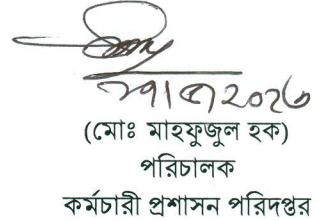 (মোঃ মাহফুজুল হক)
পরিচালক
কর্মচারী প্রশাসন পরিদপ্তর